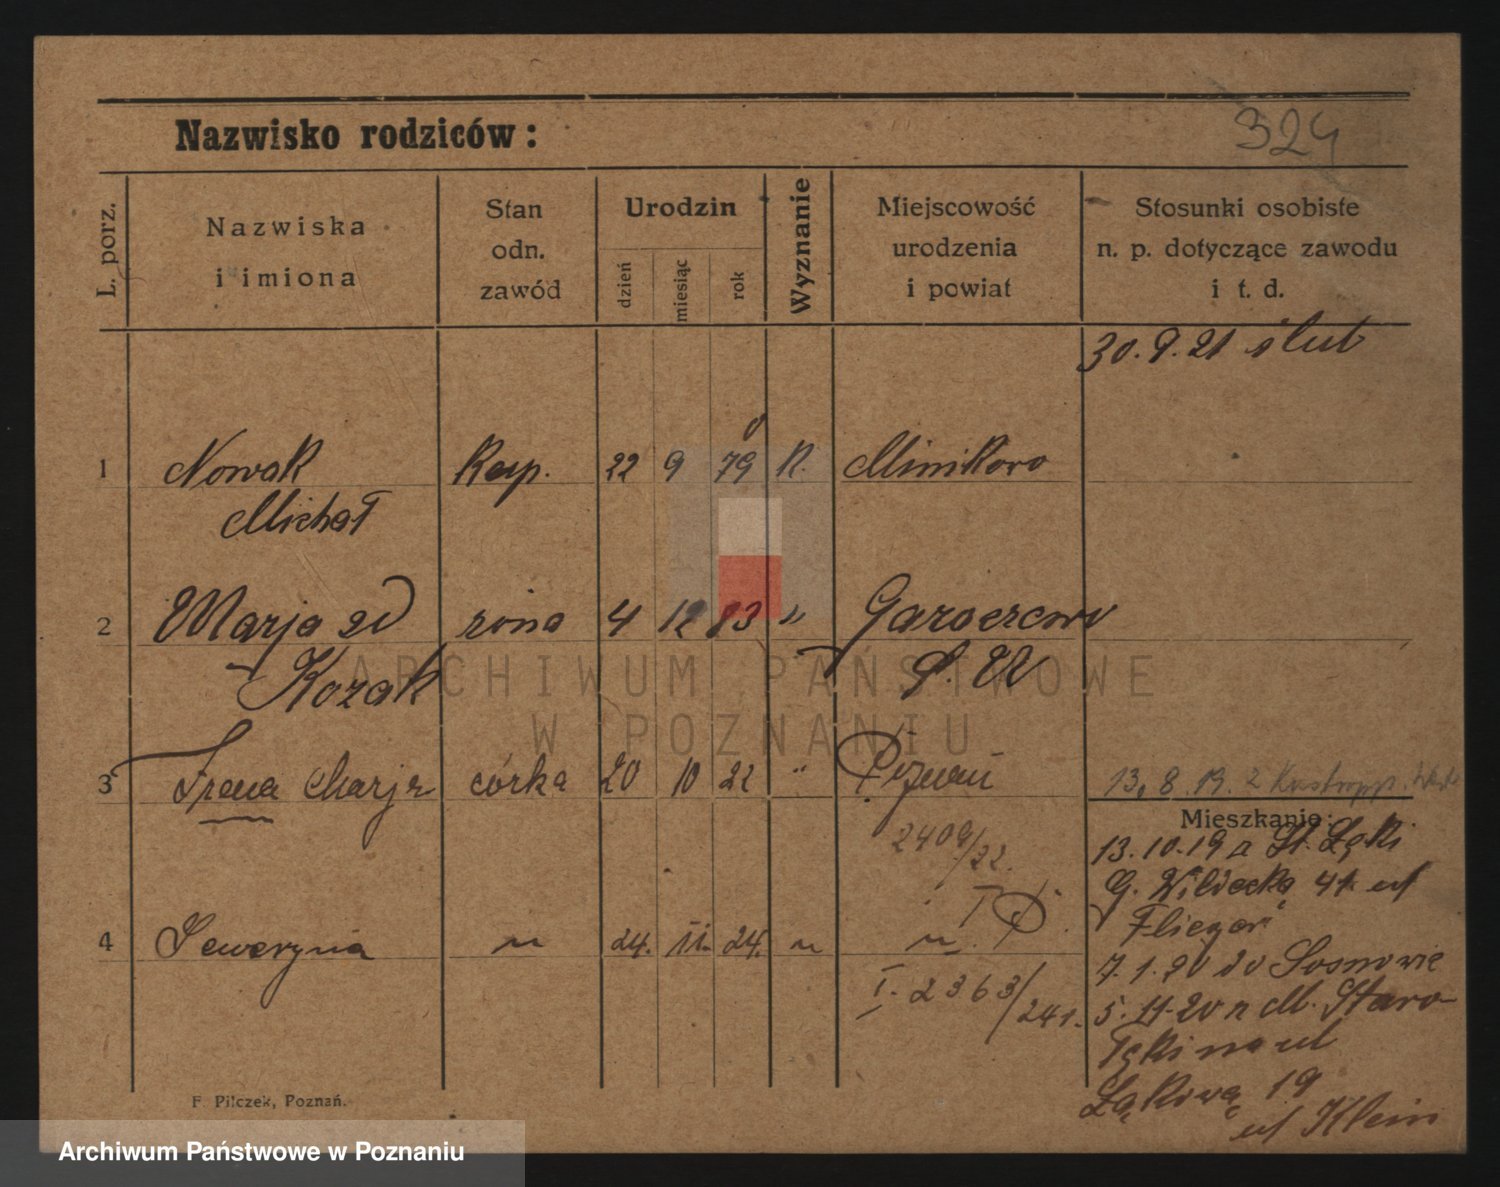 324
Nazwisko rodziców:
L. porz.
Nazwiska
i imiona
Stan
odn.
zawód
Urodzin
dzień
miesiąc
rok
Wyznanie
Miejscowość
urodzenia
i powiat
Stosunki osobiste
n. p. dotyczące zawodu
i t. d.
30. 9. 21 ślub
1 Nowak 22 9 79 K. Minikowo
Michał
2 Marja zd żona 4 12 83 "
Kozak
3 Irena Marja córka 20 10 22 " Poznań
13. 8. 19. z
Mieszkanie:
2409/22.
13. 10. 19 a St. Łęki
G. Wildecka 41
4 Seweryna " 24. 11. 24. " "
7. 1. 20 do Sosnowie
I. 2363/241.
5. 11. 20 n M. Staro-
łęki na ul
Łąkową 19
Klein
F. Pilczek, Poznań.
ARCHIWUM PAŃSTWOWE
W POZNANIU
Archiwum Państwowe w Poznaniu